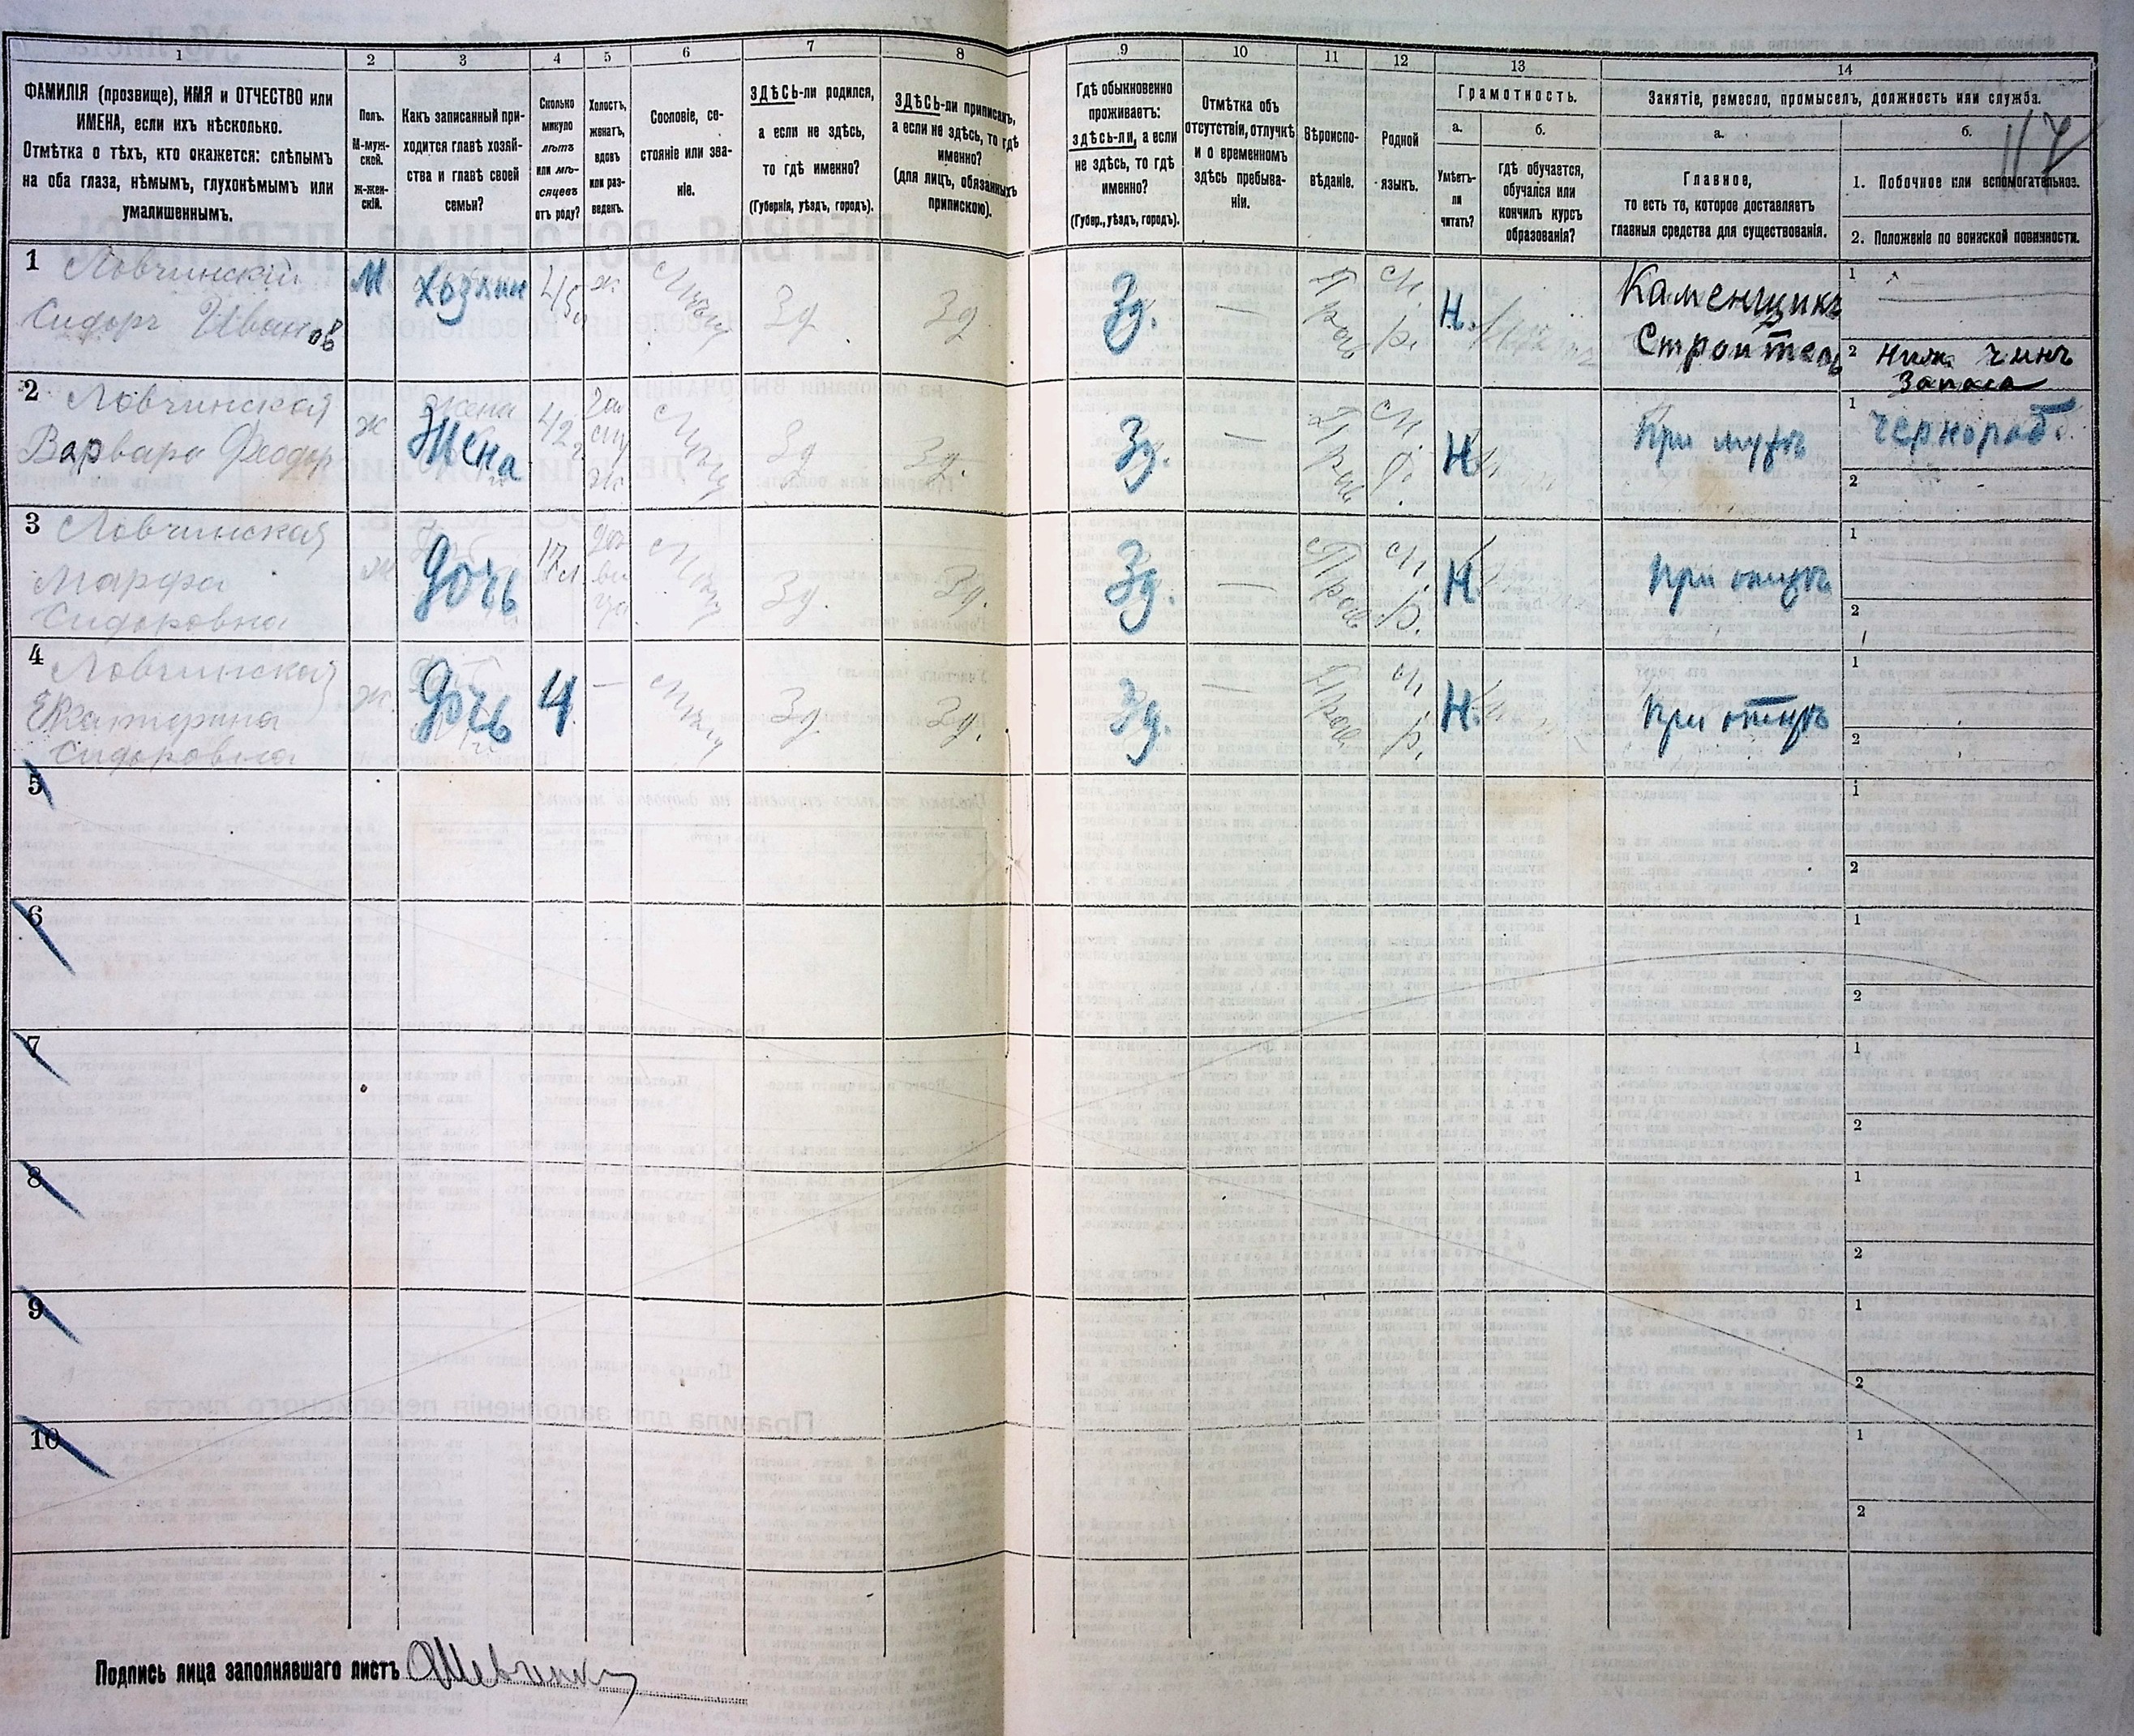 1
2
3
4
5
6
7
8
9
10
11
12
13
14
ФАМИЛІЯ (прозвище), ИМЯ и ОТЧЕСТВО или
ИМЕНА, если ихъ нѣсколько.
Отмѣтка о тѣхъ, кто окажется: слѣпымъ
на оба глаза, нѣмымъ, глухонѣмымъ или
умалишеннымъ.
Полъ.
М-муж-
ской.
Ж-жен-
скій.
Какъ записанный при-
ходится главѣ хозяй-
ства и главѣ своей
семьи?
Сколько
минуло
лѣтъ
или мѣ-
сяцевъ
отъ роду?
Холостъ,
женатъ,
вдовъ
или раз-
веденъ.
Сословіе, со-
стояніе или зва-
ніе.
ЗДѢСЬ-ли родился,
а если не здѣсь,
то гдѣ именно?
(Губернія, уѣздъ, городъ).
ЗДѢСЬ-ли приписанъ,
а если не здѣсь, то гдѣ
именно?
(для лицъ, обязанныхъ
припискою).
Гдѣ обыкновенно
проживаетъ:
здѣсь-ли, а если
не здѣсь, то гдѣ
именно?
(Губер., уѣздъ, городъ).
Отмѣтка объ
отсутствіи, отлучкѣ
и о временномъ
здѣсь пребыва-
ніи.
Вѣроиспо-
вѣданіе.
Родной
языкъ.
Грамотность.
а.
б.
Умѣетъ-
ли
читать?
гдѣ обучается,
обучался или
кончилъ курсъ
образованія?
Занятіе, ремесло, промыселъ, должность или служба.
а.
б.
117
Главное,
то есть то, которое доставляетъ
главныя средства для существованія.
1. Побочное или вспомогательное.
2. Положеніе по воинской повинности.
1
Ловчинскій
Сидоръ Ивановъ
М
хозяин
45
ж
Зд
Зд
Зд.
—
Прав
М.
р.
Н.
Каменщикъ
Строитель
1
2 Ниж. чинъ
Запаса
2
Ловчинская
Варвара Феодор
ж
Жена
Жена
42
Зд
Зд.
Зд.
—
Прав
М.
Р.
Н
При мужѣ
1
чернораб.
2
3
Ловчинская
Марфа
Сидоровна
ж
дочь
17
Зд.
Зд.
Зд.
—
Прав
М.
Р.
Н.
При отцѣ
1
2
4
Ловчинская
Екатерина
Сидоровна
ж.
дочь
4
—
Зд.
Зд.
Зд.
—
Прав
М.
р.
Н.
При отцѣ
1
2
5
1
2
6
1
2
7
1
2
8
1
2
9
1
2
10
1
2
Подпись лица заполнявшаго листъ